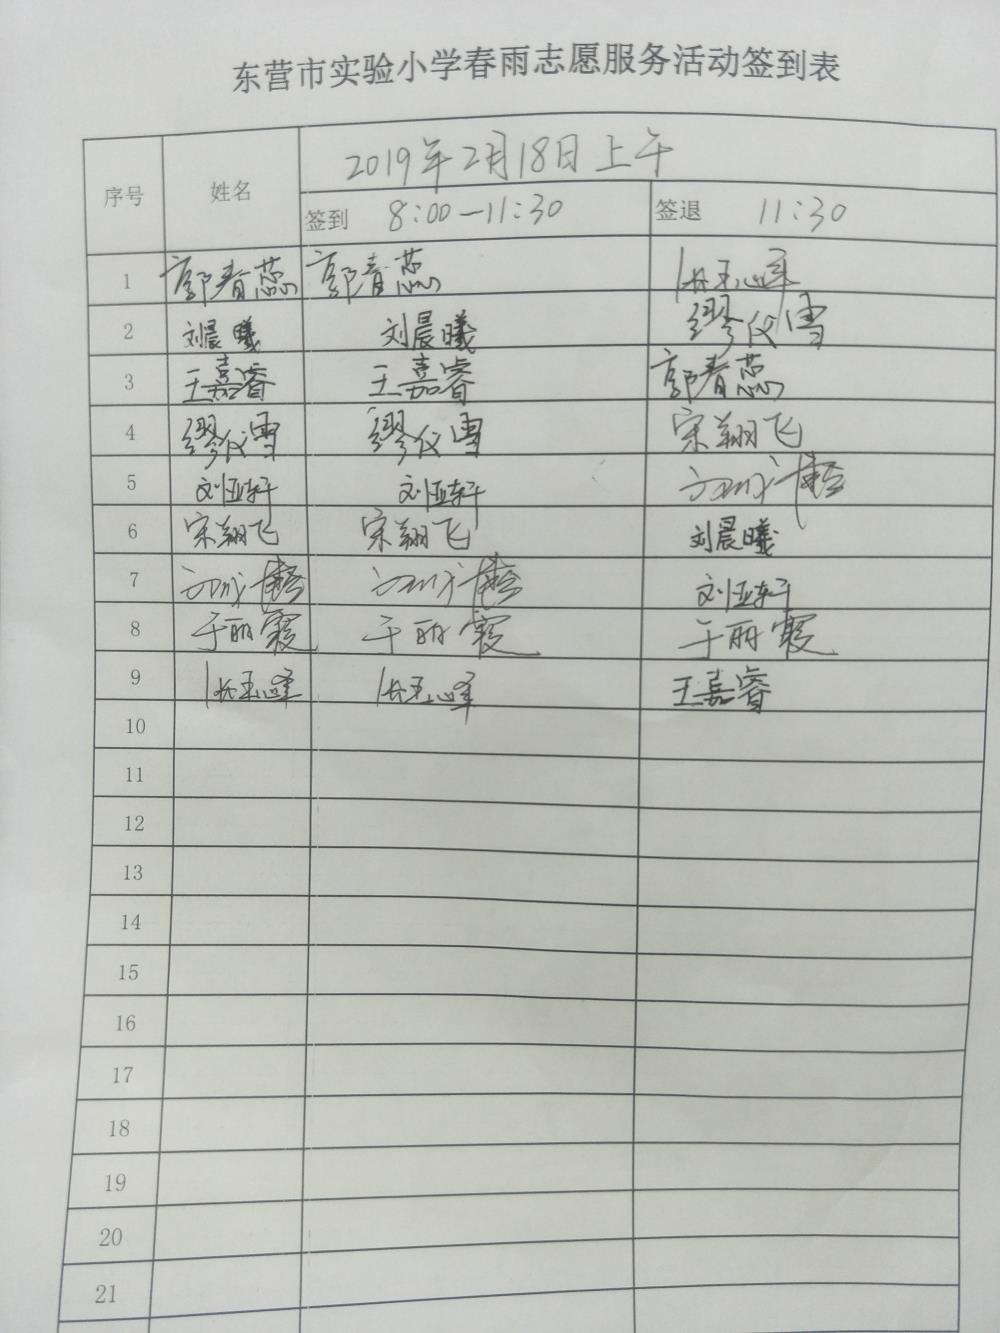 东营市实验小学春雨志愿服务活动签到表
序号 姓名 2019年2月18日上午
签到 8:00—11:30 签退 11:30
1 郭春蕊 郭春蕊
2 刘晨曦 刘晨曦 缪仪雪
3 王嘉睿 王嘉睿 郭春蕊
4 缪仪雪 缪仪雪 宋翔飞
5 刘亚轩 刘亚轩
6 宋翔飞 宋翔飞 刘晨曦
7 刘亚轩
8 于丽霞 于丽霞 于丽霞
9 王嘉睿
10
11
12
13
14
15
16
17
18
19
20
21